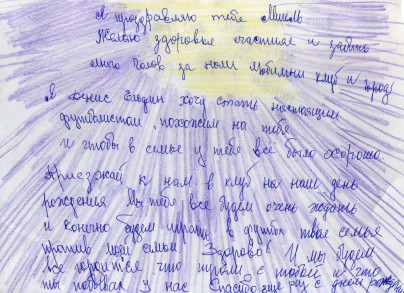 Я проздравляю тебе Мишель
Желаю здоровье счастия и забить
много голов за наш любимый клуб и город
Я Денис Ельдин хочу стать настоящим
футбалистом похожим на тебя
и чтобы в семье у тебя всё было хорошо.
Приезжай к нам в клуб на наш день
рождения Мы тебе все будем очень ждать
и конечно будем играть в футбол твоя семья
против моей семьи Здорово! И мы будем
все гордится что играл с тобой и что
ты побывал у нас Спасибо ещё раз с днем рождения